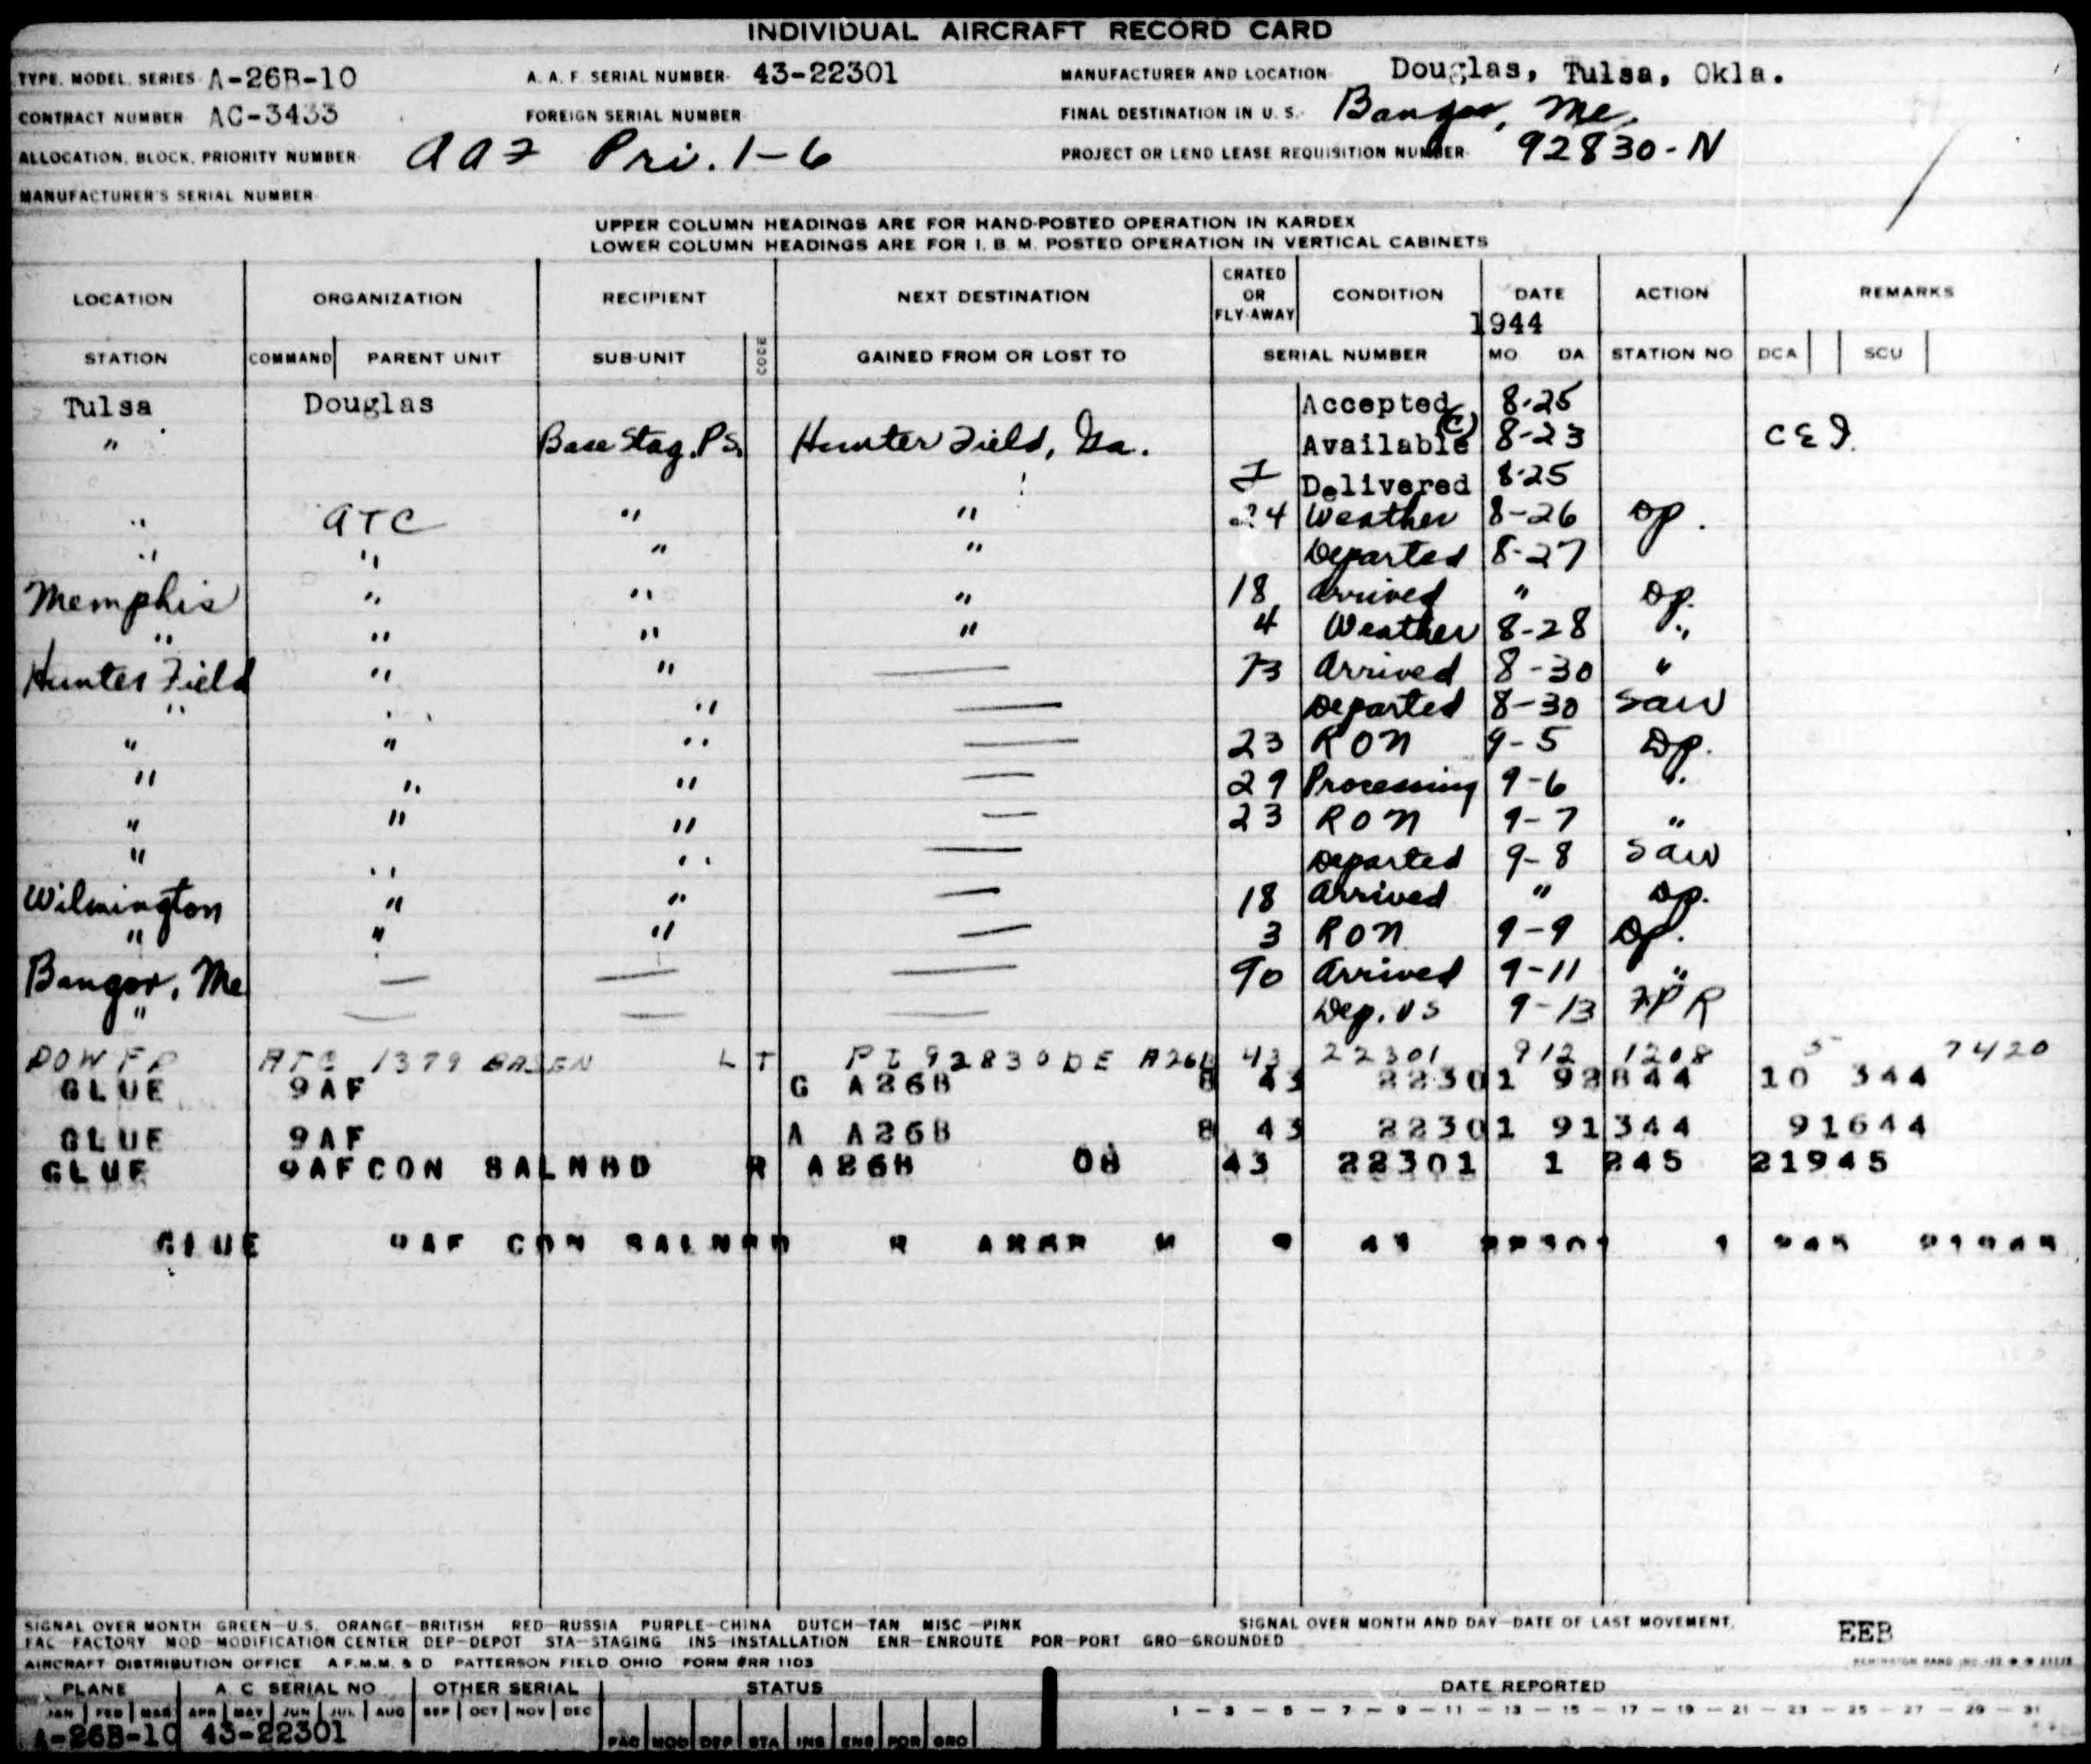 INDIVIDUAL AIRCRAFT RECORD CARD
TYPE, MODEL, SERIES A-26B-10 A. A. F. SERIAL NUMBER 43-22301 MANUFACTURER AND LOCATION Douglas, Tulsa, Okla.
CONTRACT NUMBER AC-3433 FOREIGN SERIAL NUMBER FINAL DESTINATION IN U. S. Bangor, Me.
ALLOCATION, BLOCK, PRIORITY NUMBER AAF Pri. 1-6 PROJECT OR LEND LEASE REQUISITION NUMBER 92830-N
MANUFACTURER'S SERIAL NUMBER
UPPER COLUMN HEADINGS ARE FOR HAND-POSTED OPERATION IN KARDEX
LOWER COLUMN HEADINGS ARE FOR I. B. M. POSTED OPERATION IN VERTICAL CABINETS
LOCATION ORGANIZATION RECIPIENT NEXT DESTINATION CRATED OR FLY-AWAY CONDITION DATE ACTION REMARKS
1944
STATION COMMAND PARENT UNIT SUB-UNIT CODE GAINED FROM OR LOST TO SERIAL NUMBER MO DA STATION NO DCA SCU
Tulsa Douglas Accepted 8-25
" Base Stag. P.S. Hunter Field, Ga. Available (C) 8-23 C&I.
Delivered 8-25
" ATC " " 24 Weather 8-26 Op.
" " " " Departed 8-27
Memphis " " " 18 Arrived " Op.
" " " " 4 Weather 8-28 "
Hunter Field " " — 73 Arrived 8-30 "
" " " — Departed 8-30 Saw
" " " — 23 RON 9-5 Op.
" " " — 29 Processing 9-6 "
" " " — 23 RON 9-7 "
" " " — Departed 9-8 Saw
Wilmington " " — 18 Arrived " Op.
" " " — 3 RON 9-9 Op.
Bangor, Me — — — 90 Arrived 9-11 "
" — — — Dep. US 9-13 FPR
DOW FP ATC 1379 BASEN L T PI 92830 DE A26B 43 22301 912 1208 7420
GLUE 9AF G A26B 8 43 22301 92844 10 344
GLUE 9AF A A26B 8 43 22301 91344 91644
GLUE 9AFCON SALNHD R A26B 08 43 22301 1 245 21945
GLUE 9AF CON R 43 22301 1 245
SIGNAL OVER MONTH GREEN-U.S. ORANGE-BRITISH RED-RUSSIA PURPLE-CHINA DUTCH-TAN MISC-PINK SIGNAL OVER MONTH AND DAY-DATE OF LAST MOVEMENT.
FAC-FACTORY MOD-MODIFICATION CENTER DEP-DEPOT STA-STAGING INS-INSTALLATION ENR-ENROUTE POR-PORT GRO-GROUNDED
EEB
AIRCRAFT DISTRIBUTION OFFICE A.F.M.M. & D PATTERSON FIELD, OHIO FORM #RR 1103
PLANE A. C. SERIAL NO OTHER SERIAL STATUS DATE REPORTED
JAN FEB MAR APR MAY JUN JUL AUG SEP OCT NOV DEC 1 - 3 - 5 - 7 - 9 - 11 - 13 - 15 - 17 - 19 - 21 - 23 - 25 - 27 - 29 - 31
A-26B-10 43-22301 FAC MOD DEP STA INS ENR POR GRO